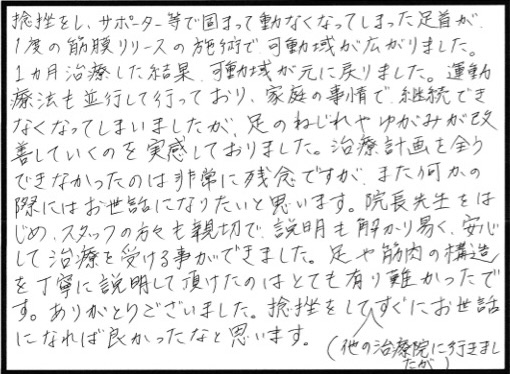 捻挫をし、サポーター等で固まって動なくなってしまった足首が、
1度の筋膜リリースの施術で可動域が広がりました。
1ヵ月治療した結果、可動域が元に戻りました。運動
療法も並行して行っており、家庭の事情で継続でき
なくなってしまいましたが、足のねじれやゆがみが改
善していくのを実感しておりました。治療計画を全う
できなかったのは非常に残念ですが、また何かの
際にはお世話になりたいと思います。院長先生をは
じめ、スタッフの方々も親切で、説明も解かり易く、安心
して治療を受ける事ができました。足や筋肉の構造
を丁寧に説明して頂けたのはとても有り難かったで
す。ありがとうございました。捻挫をしてすぐにお世話
になれば良かったなと思います。
(他の治療院に行きまし
たが)